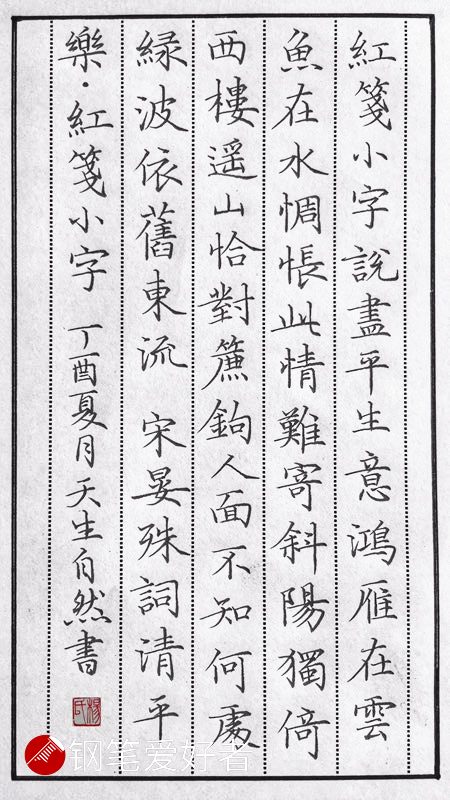 紅箋小字說盡平生意鴻雁在雲
魚在水惆悵此情難寄斜陽獨倚
西樓遥山恰對簾鉤人面不知何處
緑波依舊東流 宋晏殊詞清平
樂·紅箋小字 丁酉夏月天生自然書
钢笔爱好者